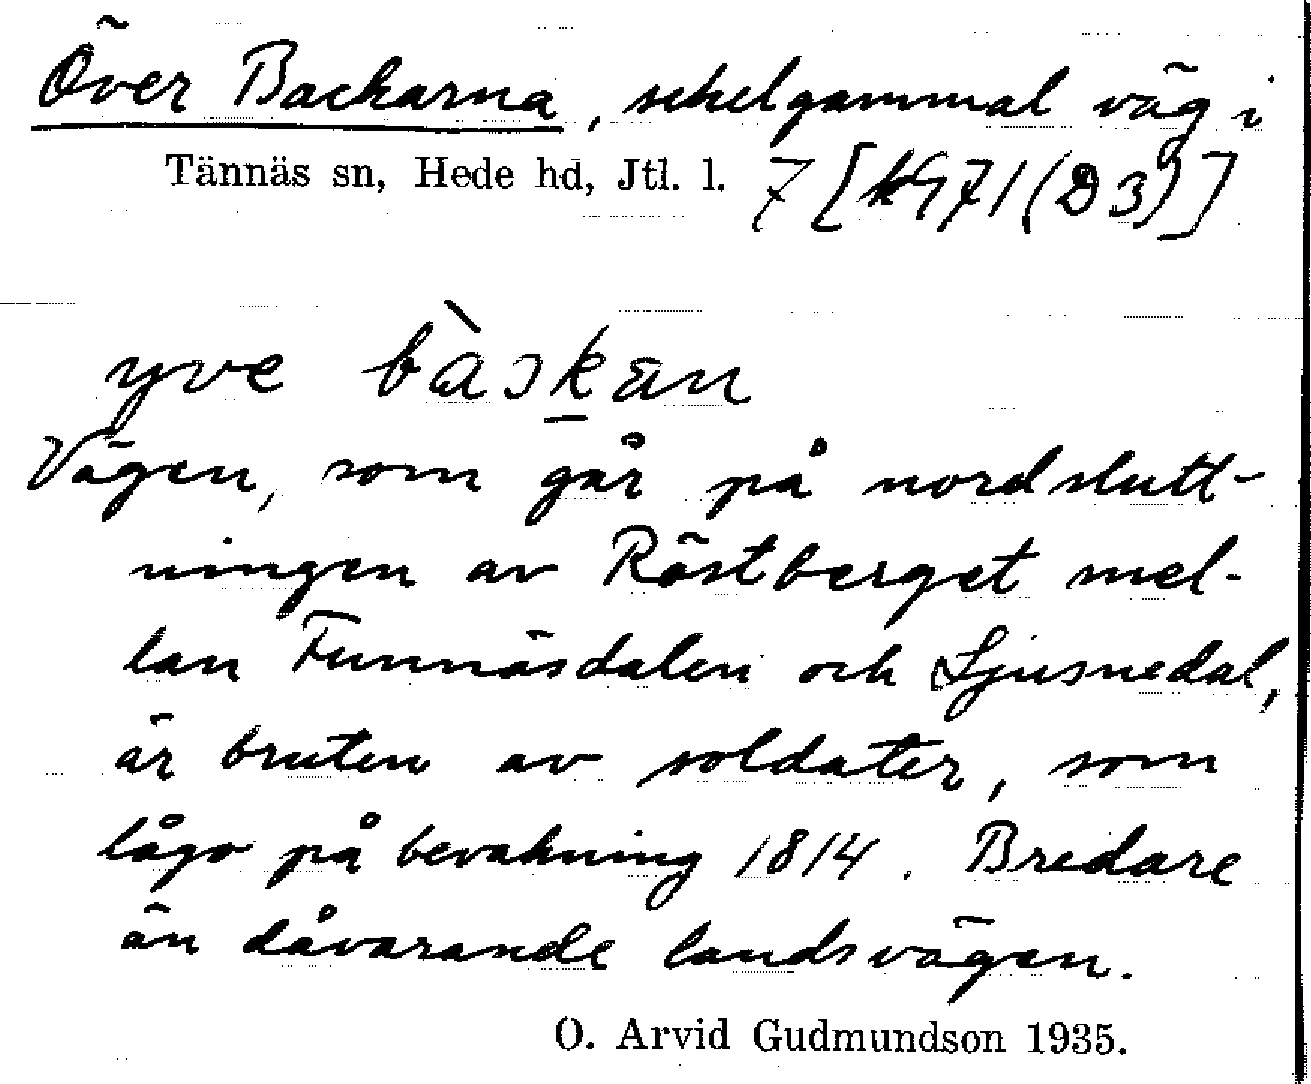 Över Backarna, sekelgammal väg i
Tännäs sn, Hede hd, Jtl. l. 7 [k971(D3)]
yve bàɔkan
Vägen, som går på nordslutt-
ningen av Röstberget mel-
lan Funnäsdalen och Ljusnedal,
är bruten av soldater, som
lågo på bevakning 1814. Bredare
än dåvarande landsvägen.
O. Arvid Gudmundson 1935.